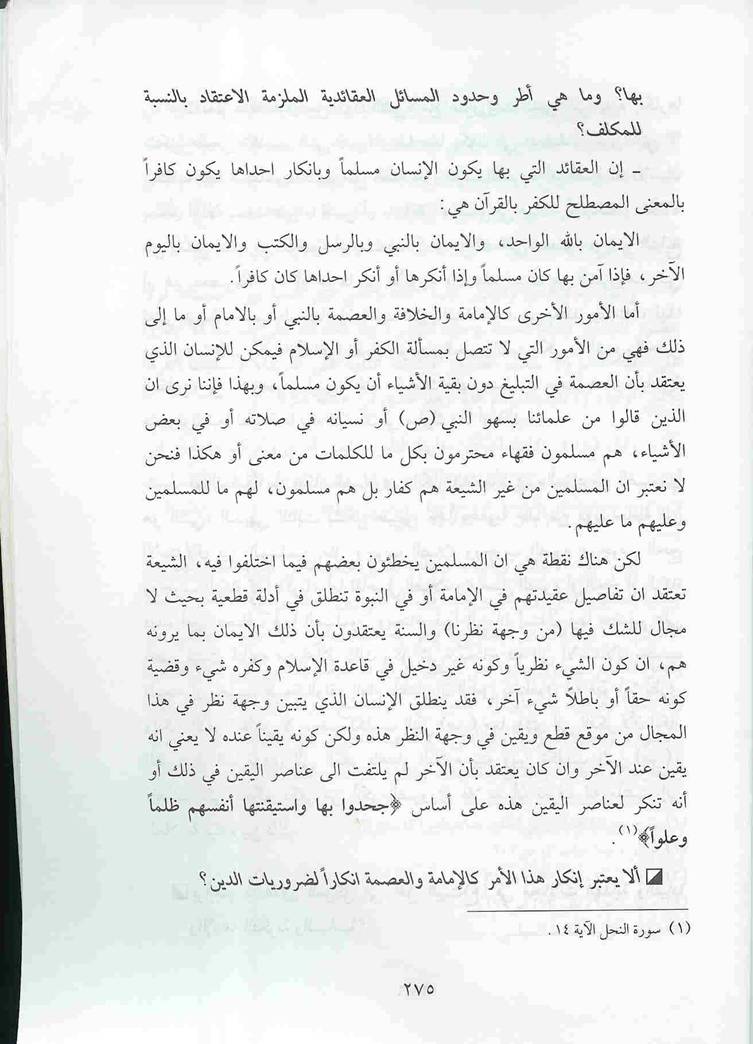 بها؟ وما هي أطر وحدود المسائل العقائدية الملزمة الاعتقاد بالنسبة
للمكلف؟
ـ إن العقائد التي بها يكون الإنسان مسلماً وبانكار احداها يكون كافراً
بالمعنى المصطلح للكفر بالقرآن هي:
الايمان بالله الواحد، والايمان بالنبي وبالرسل والكتب والايمان باليوم
الآخر، فإذا آمن بها كان مسلماً وإذا أنكرها أو أنكر احداها كان كافراً.
أما الأمور الأخرى كالإمامة والخلافة والعصمة بالنبي أو بالامام أو ما إلى
ذلك فهي من الأمور التي لا تتصل بمسألة الكفر أو الإسلام فيمكن للإنسان الذي
يعتقد بأن العصمة في التبليغ دون بقية الأشياء أن يكون مسلماً، وبهذا فإننا نرى ان
الذين قالوا من علمائنا بسهو النبي (ص) أو نسيانه في صلاته أو في بعض
الأشياء، هم مسلمون فقهاء محترمون بكل ما للكلمات من معنى أو هكذا فنحن
لا نعتبر ان المسلمين من غير الشيعة هم كفار بل هم مسلمون، لهم ما للمسلمين
وعليهم ما عليهم.
لكن هناك نقطة هي ان المسلمين يخطئون بعضهم فيما اختلفوا فيه، الشيعة
تعتقد ان تفاصيل عقيدتهم في الإمامة أو في النبوة تنطلق في أدلة قطعية بحيث لا
مجال للشك فيها (من وجهة نظرنا) والسنة يعتقدون بأن ذلك الايمان بما يرونه
هم، ان كون الشيء نظرياً وكونه غير دخيل في قاعدة الإسلام وكفره شيء وقضية
كونه حقاً أو باطلاً شيء آخر، فقد ينطلق الإنسان الذي يتبين وجهة نظر في هذا
المجال من موقع قطع ويقين في وجهة النظر هذه ولكن كونه يقيناً عنده لا يعني انه
يقين عند الآخر وان كان يعتقد بأن الآخر لم يلتفت الى عناصر اليقين في ذلك أو
أنه تنكر لعناصر اليقين هذه على أساس ﴿جحدوا بها واستيقنتها أنفسهم ظلماً
وعلواً﴾(١).
ألا يعتبر إنكار هذا الأمر كالإمامة والعصمة انكاراً لضروريات الدين؟
(١) سورة النحل الآية ١٤.
٢٧٥